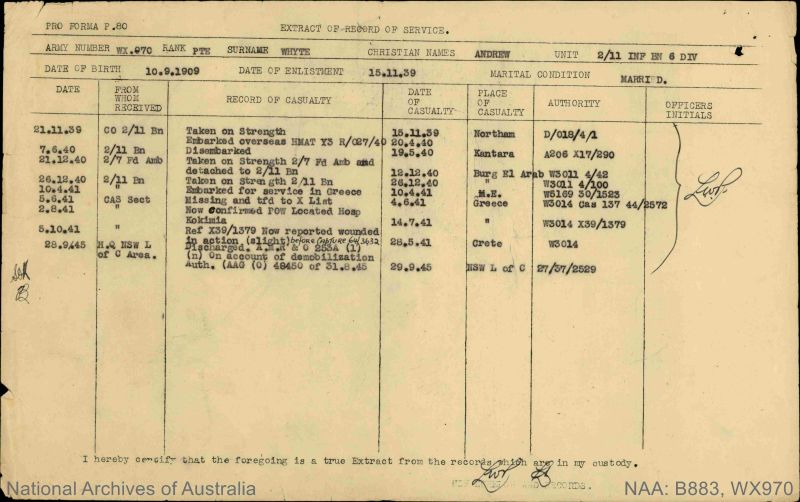 PRO FORMA P.80
EXTRACT OF RECORD OF SERVICE.
ARMY NUMBER WX.970 RANK PTE SURNAME WHYTE CHRISTIAN NAMES ANDREW UNIT 2/11 INF BN 6 DIV
DATE OF BIRTH 10.9.1909 DATE OF ENLISTMENT 15.11.39 MARITAL CONDITION MARRIED.
DATE FROM WHOM RECEIVED RECORD OF CASUALTY DATE OF CASUALTY PLACE OF CASUALTY AUTHORITY OFFICERS INITIALS
21.11.39 CO 2/11 Bn Taken on Strength 15.11.39 Northam D/018/4/1
Embarked overseas HMAT Y3 R/027/40 20.4.40
7.6.40 2/11 Bn Disembarked 19.5.40 Kantara A206 X17/290
21.12.40 2/7 Fd Amb Taken on Strength 2/7 Fd Amb and
detached to 2/11 Bn 12.12.40 Burg El Arab W3011 4/42
26.12.40 2/11 Bn Taken on Strength 2/11 Bn 26.12.40 " W3011 4/100
10.4.41 " Embarked for service in Greece 10.4.41 M.E. W5169 30/1523
5.6.41 CAS Sect Missing and tfd to X List 4.6.41 Greece W3014 Cas 137 44/2572
2.8.41 " Now Confirmed POW Located Hosp
Kokimia 14.7.41 " W3014 X39/1379
5.10.41 " Ref X39/1379 Now reported wounded
in action (slight) before capture 64/3632 28.5.41 Crete W3014
28.9.45 H.Q NSW L of C Area. Discharged. A.M.R & O 253A (1)
(n) On account of demobilization
Auth. (AAG (O) 48450 of 31.8.45 29.9.45 NSW L of C 27/37/2529
I hereby certify that the foregoing is a true Extract from the records which are in my custody.
AND RECORDS.
National Archives of Australia
NAA: B883, WX970